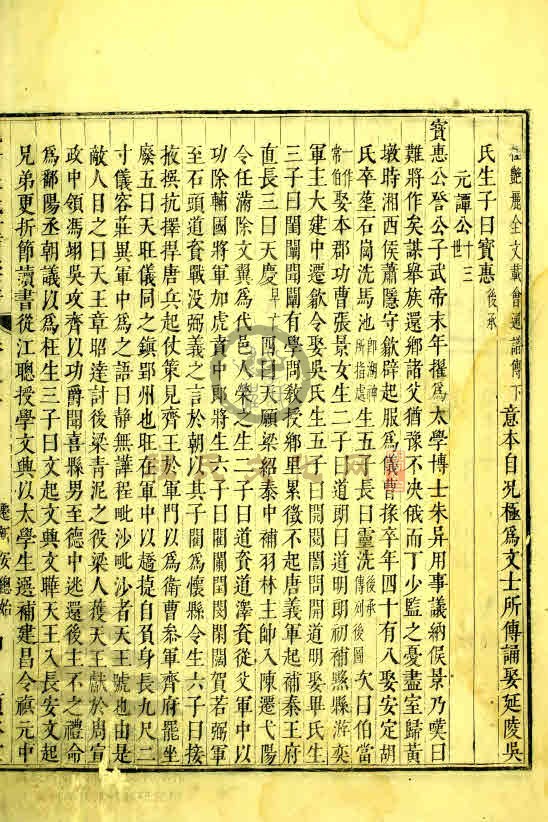 極艷麗全文載會通譜傳下意本自况極爲文士所傳誦娶延陵吳
氏生子曰寳惠後承
元譚公十三世
寳惠公詧公子武帝末年擢爲太學博士朱异用事議納侯景乃嘆曰
難將作矣謀舉族還鄉諸父猶豫不决俄而丁少監之憂盡室歸黃
墩時湘西侯蕭隱守歙辟起服爲儀曹掾卒年四十有八娶安定胡
氏卒塟石崗洗馬池卽湖神所指處生五子長曰靈洗後承傳列後圖次曰伯當
一作常伯娶本郡功曹張景女生二子曰道朗曰道明郎初補黟縣游奕
軍主大建中遷歙令娶吳氏生五子曰問開道明娶畢氏生
三子曰闡闡有學問教授鄉里累徵不起唐義軍起補秦王府
直長三曰天慶早亡四曰天願梁紹泰中補羽林主帥入陳遷弋陽
令任滿除文翼爲代邑人榮之生二子曰道奓道澤奓從父軍中以
功除輔國將軍加虎賁中郎將生六子曰開闢闊賀若弼軍
至石頭道奓戰没弼義之言於朝以其子闓爲懷縣令生六子曰接
掖撰抗擇捍唐兵起仗策見齊王於軍門以爲衛曹叅軍齊府罷坐
廢五曰天旺儀同之鎮郢州也旺在軍中以趫捷自負身長九尺二
寸儀容莊異軍中爲之語曰静無譁程毗沙毗沙者天王號也由是
敵人目之曰天王章昭達討後梁青泥之役梁人獲天王獻於周宣
政中領馮翊吳攻齊以功爵聞喜縣男至德中逃還後主不之禮命
爲鄱陽丞朝議以爲枉生三子曰文起文典文聮天王入長安文起
兄弟更折節讀書從江聰授學文典以太學生選補建昌令禎元中